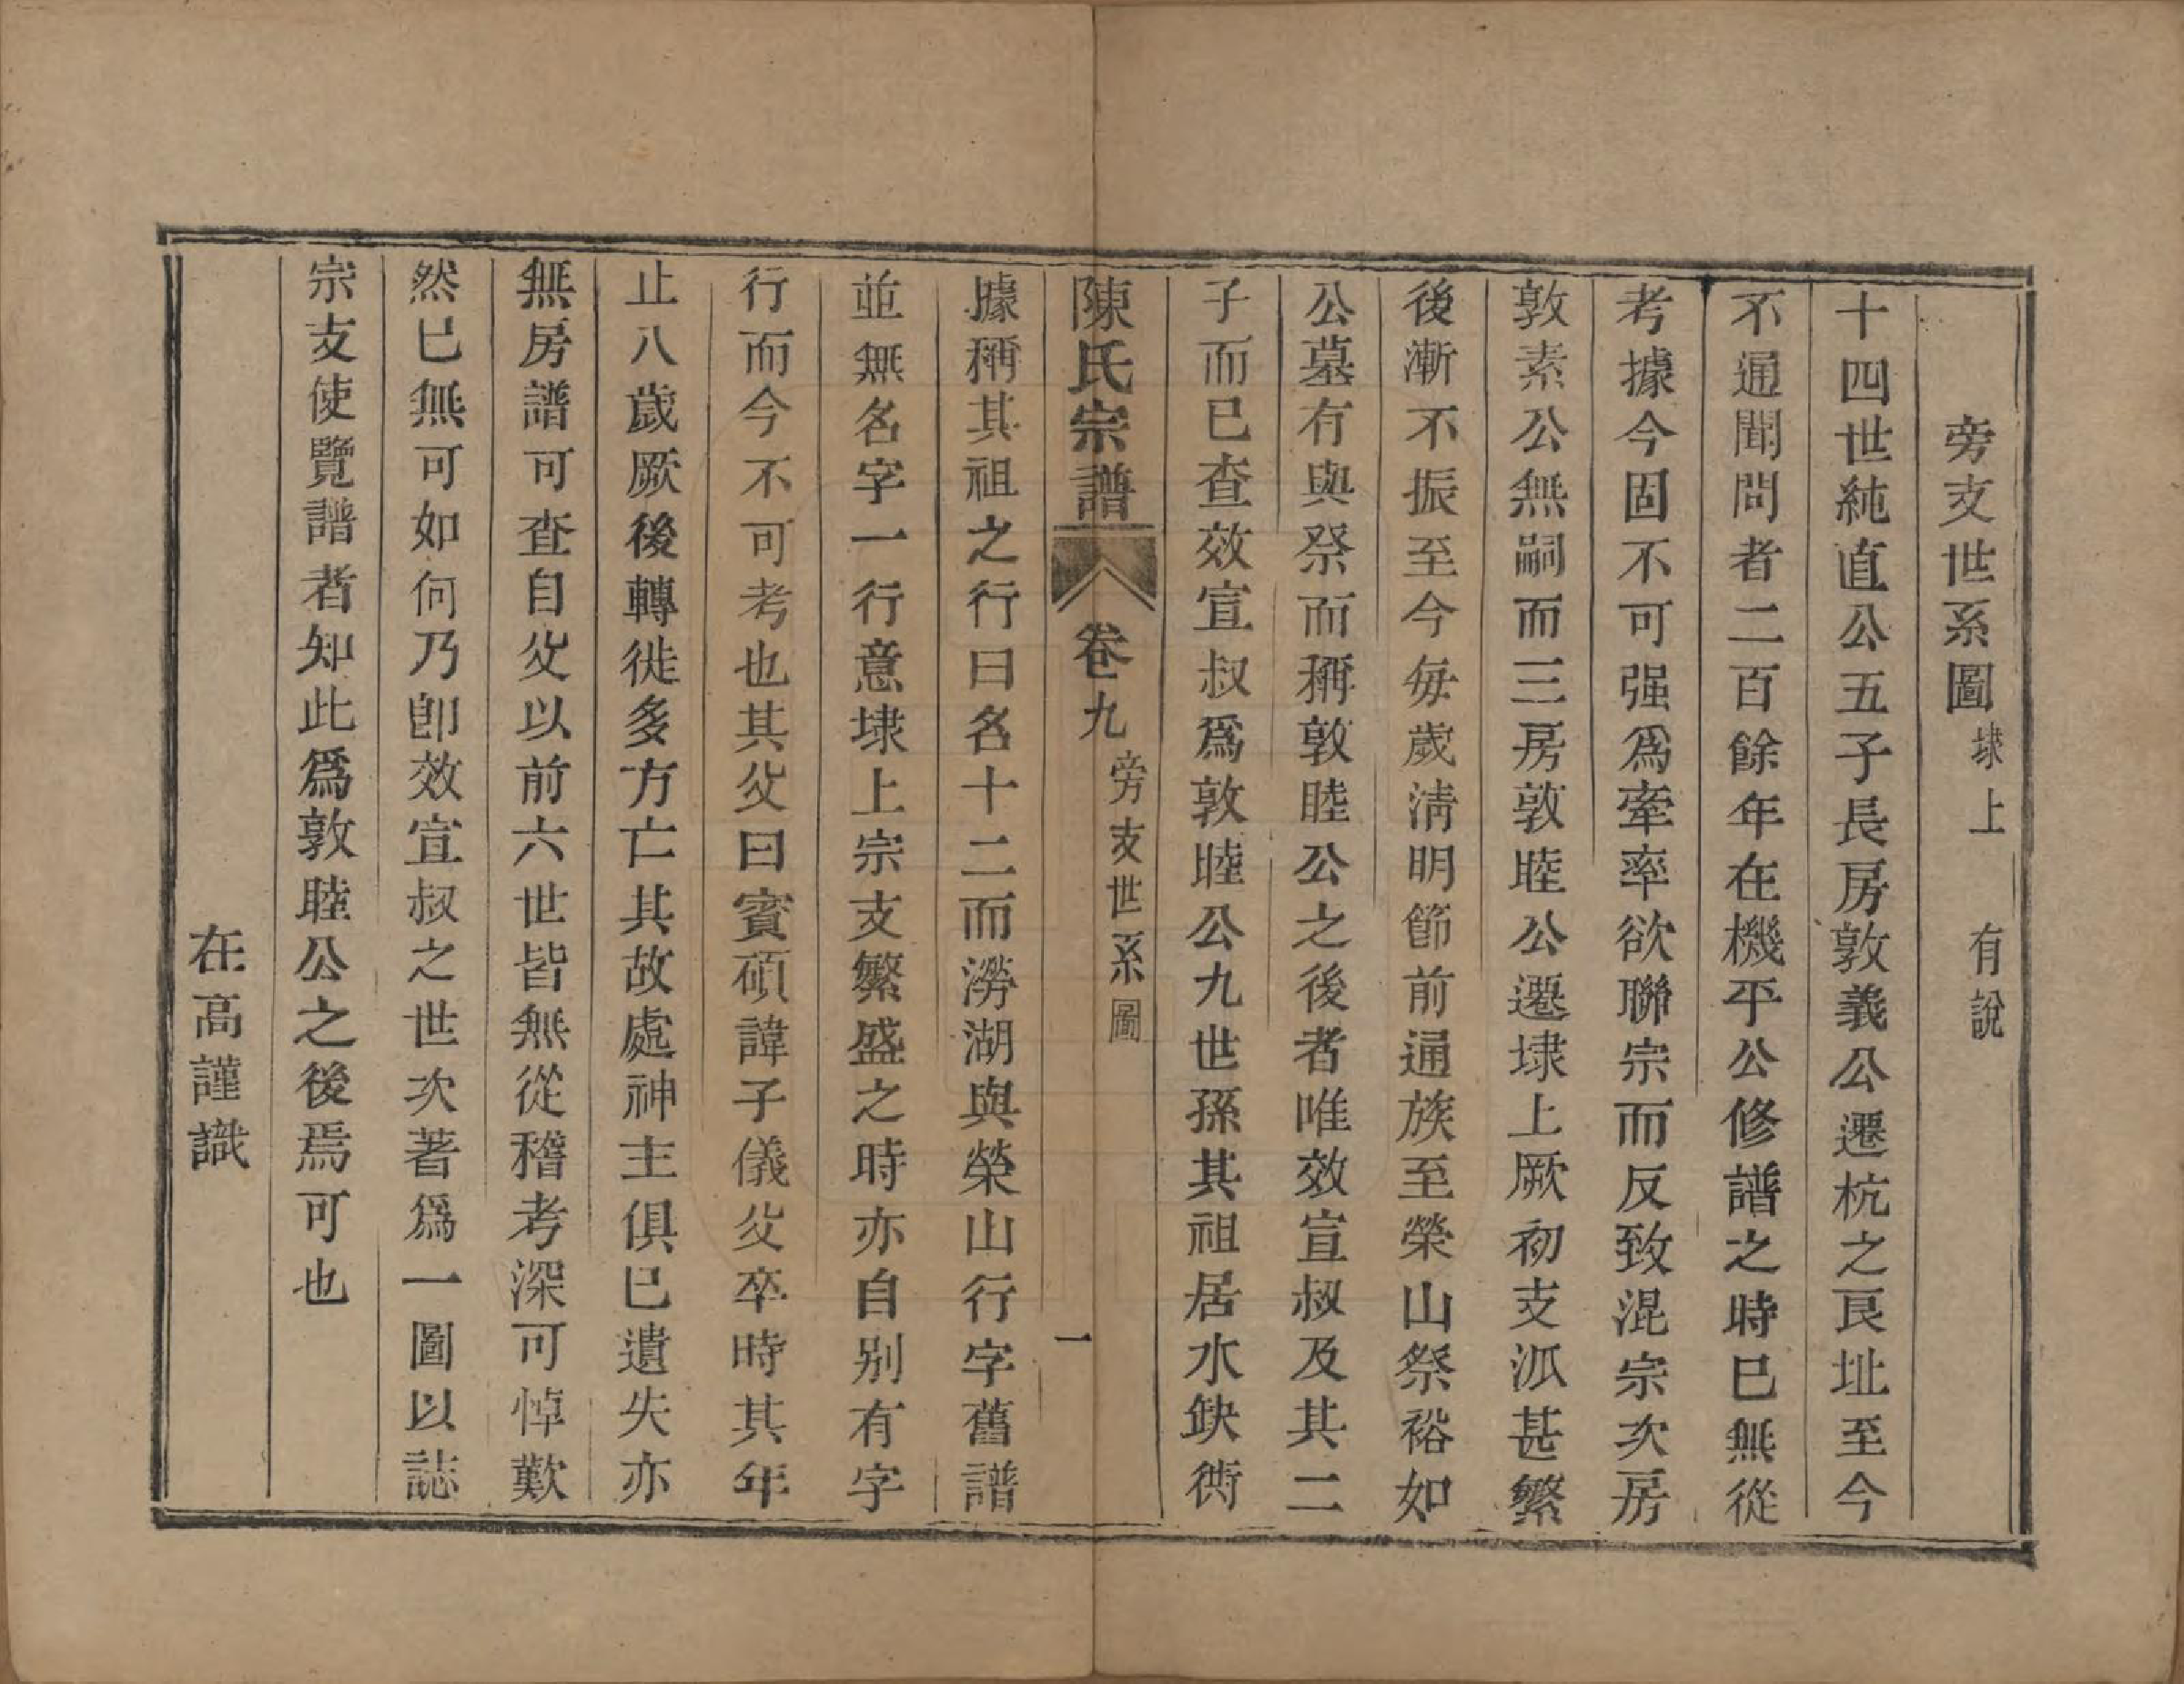 旁支世系圖 埭上 有說
十四世純直公五子長房敦義公遷杭之艮址至今
不通聞問者二百餘年在機平公修譜之時已無從
考據今固不可强爲牽率欲聯宗而反致混宗次房
敦素公無嗣而三房敦睦公遷埭上厥初支派甚繁
後漸不振至今每歲清明節前通族至榮山祭裕如
公墓有與祭而稱敦睦公之後者唯效宣叔及其二
子而已查效宣叔爲敦睦公九世孫其祖居水缺衖
陳氏宗譜 卷九 旁支世系圖 一
據稱其祖之行曰名十二而澇湖與榮山行字舊譜
並無名字一行意埭上宗支繁盛之時亦自别有字
行而今不可考也其父曰賓碩諱子儀父卒時其年
止八歲厥後轉徙多方亡其故處神主俱已遺失亦
無房譜可查自父以前六世皆無從稽考深可悼歎
然已無可如何乃卽效宣叔之世次著爲一圖以誌
宗支使覽譜者知此爲敦睦公之後焉可也
在高謹識